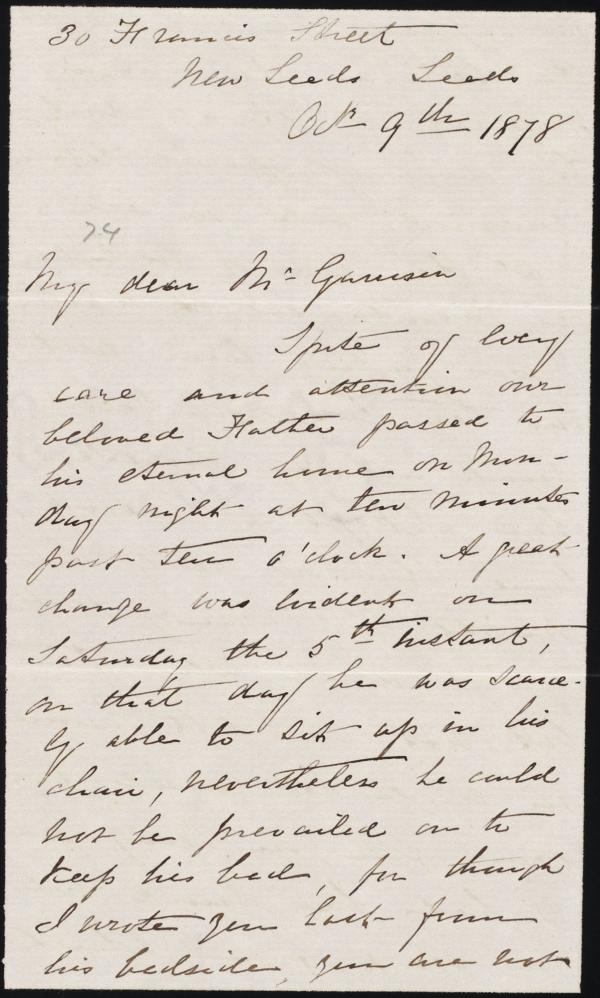 30 Francis Street
New Leeds Leeds
Octr 9th 1878
74
My dear Mr Garrison
Spite of every
care and attention our
beloved Father passed to
his eternal home on Mon-
day night at ten minutes
past ten o'clock. A great
change was evident on
Saturday the 5th instant,
on that day he was scarce-
ly able to sit up in his
chair, nevertheless he could
not be prevailed on to
keep his bed, for though
I wrote you last from
his bedside, you are not